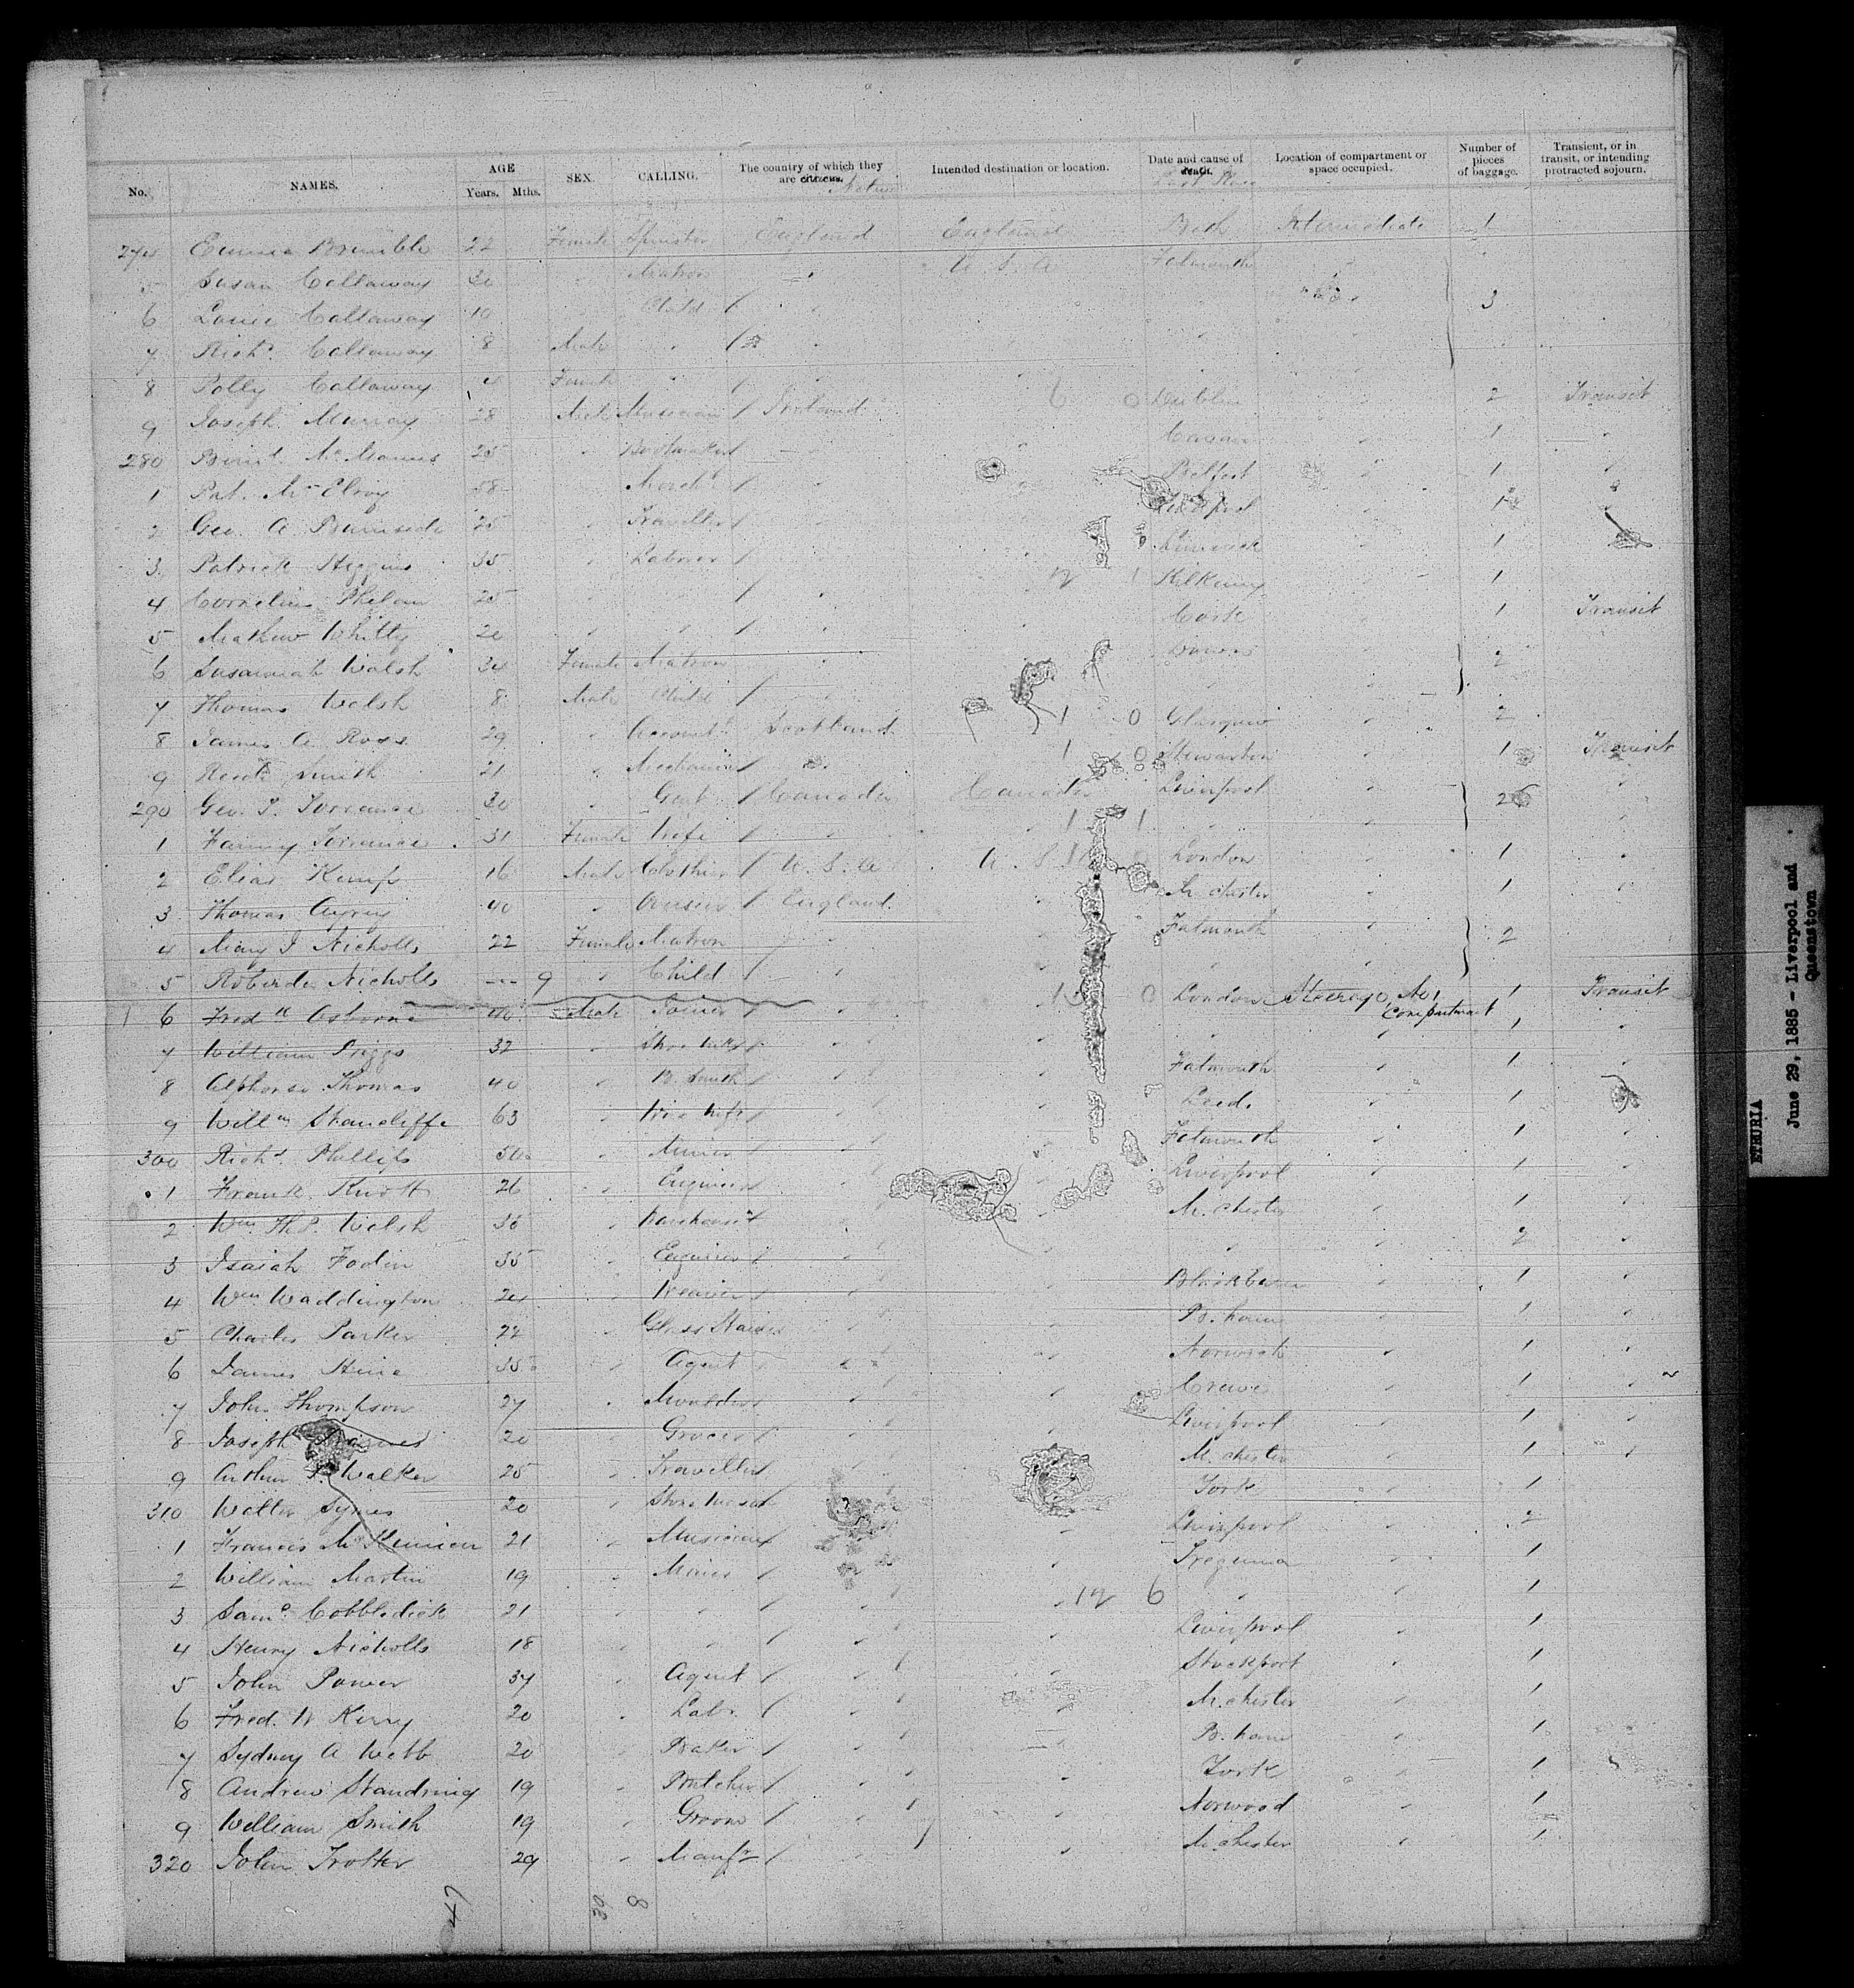 No. NAMES. AGE Years. Mths. SEX. CALLING. The country of which they are citizens. Native Intended destination or location. Date and cause of death. Last Place Location of compartment or space occupied. Number of pieces of baggage. Transient, or in transit, or intending protracted sojourn.
274 Emma Brumble 22 Female Spinster England England Bath Intermediate 1
5 Susan Callaway 30 " Matron " U.S.A Falmouth "
6 Louie Callaway 10 Child / " 3
7 Richd. Callaway 8 Male " / "
8 Polly Callaway 4 Female " / "
9 Joseph Murray 28 Male Musician / Ireland 6 0 Dublin " 2 Transit
280 McManus 25 " Bootmaker / " Cavan " 1 "
1 Pat. McElroy 58 Mercht / " Belfast " 1 "
2 Geo. A Burnside 25 " Traveller / " L'pool " 1 "
3 Patrick Higgins 35 " Laborer / " Limerick " 1
4 Cornelius Phelan 25 " / " 12 1 Kilkenny " 1
5 Mathew Whitty 20 " " / " Cork " 1 Transit
6 Susannah Walsh 34 Female Matron " " 2
7 Thomas Welsh 8 Male Child / " "
8 James A Ross 29 " Accountt Scotland 1 0 Glasgow " 2
9 Smith 21 " Mechanic / " 1 0 Stewarton " 1 Transit
290 Geo. T. Torrance 30 " Gent / Canada Canada Liverpool " 2 "
1 Fanny Torrance 31 Female Wife / " " 1 1 " "
2 Elias Kemp 16 Male Clothier / U.S.A U.S. London " 1 "
3 Thomas 40 " / England " M.chester " 1 "
4 Mary J Nicholls 22 Female Matron " " Falmouth " 2
5 Nicholls -- 9 " Child / " " " "
6 Fredk Osborne 40 Male Joiner " " 10 0 London Steerage, No 1 Compartment 1 Transit
7 William Priggs 32 " / " " " " 1 "
8 Alphonso Thomas 40 " B. Smith / " " Falmouth " 1 "
9 Willm Stancliffe 63 " / " " Leeds " 1
300 Richd Phillips 50 " Miner / " " Falmouth " 1 "
1 Frank Knott 26 " Engineer " Liverpool " 1 "
2 Wm Thos. Welsh " / " " M.chester " 1 "
3 Isaiah 35 " Engineer / " " " " 2 "
4 Wm Waddington 24 " Weaver / " " Blackburn " 1 "
5 Charles Parker 22 " Glass Stainer " " B.ham " 1 "
6 James Hine 35 " Agent / " " Norwich " 1 "
7 John Thompson 27 " Moulder / " " Crewe " 1 "
8 Joseph 20 " Grocer / " Liverpool " 1 "
9 Arthur Walker 25 " Traveller / " M.chester " 1 "
310 Walter Symes 20 " Stone Mason York " 1
1 Francis 21 " Musician " Liverpool " 2
2 William Martin 19 " Miner / " " " 1
3 Saml. Cobbledick 21 " " / " " 12 6 " " 1
4 Henry Nicholls 18 " " / " " Liverpool " 1
5 John Power 34 " Agent / " " Stockport " 1
6 Fred. W Kerry 20 " Labr. / " " M.chester " 1
7 Sydney A Webb 20 " Baker / " " B.ham " 1
8 Andrew Standring 19 " Butcher / " " York " 1
9 William Smith 19 " Groom / " " Norwood " 1
320 John Trotter 29 " Manfr / " " M.chester " 1
47 8
ETRURIA
June 29, 1885 - Liverpool and
Queenstown